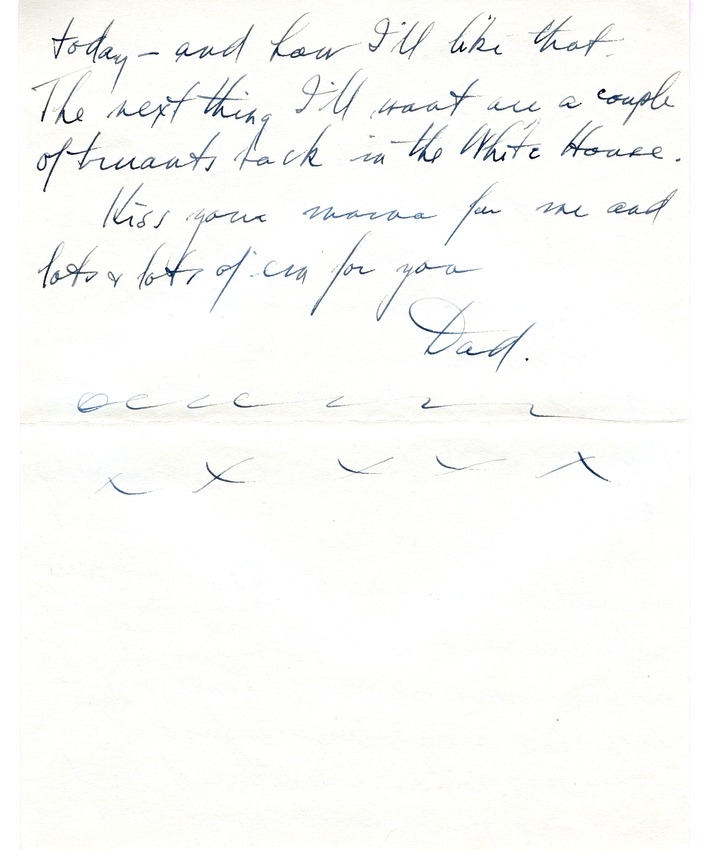 today – and how I'll like that.
The next thing I'll want are a couple
of truants back in the White House.
Kiss your mama for me and
lots & lots of 'em for you
Dad.
o c c c c c
x x x x x